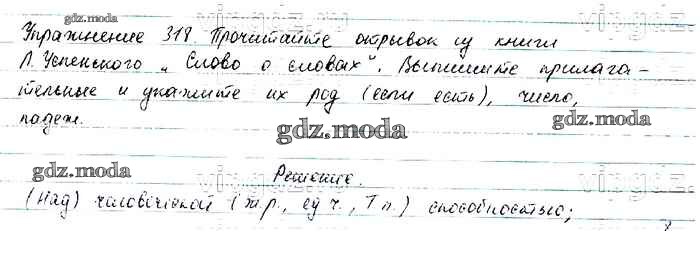 gdz.moda
Упражнение 318. Прочитайте отрывок из книги
Л. Успенского „Слово о словах". Выпишите прилага-
тельные и укажите их род (если есть), число,
падеж.
gdz.moda
gdz.moda
gdz.moda
Решение.
(Над) человеческой (ж.р., ед.ч., Т.п.) способностью;